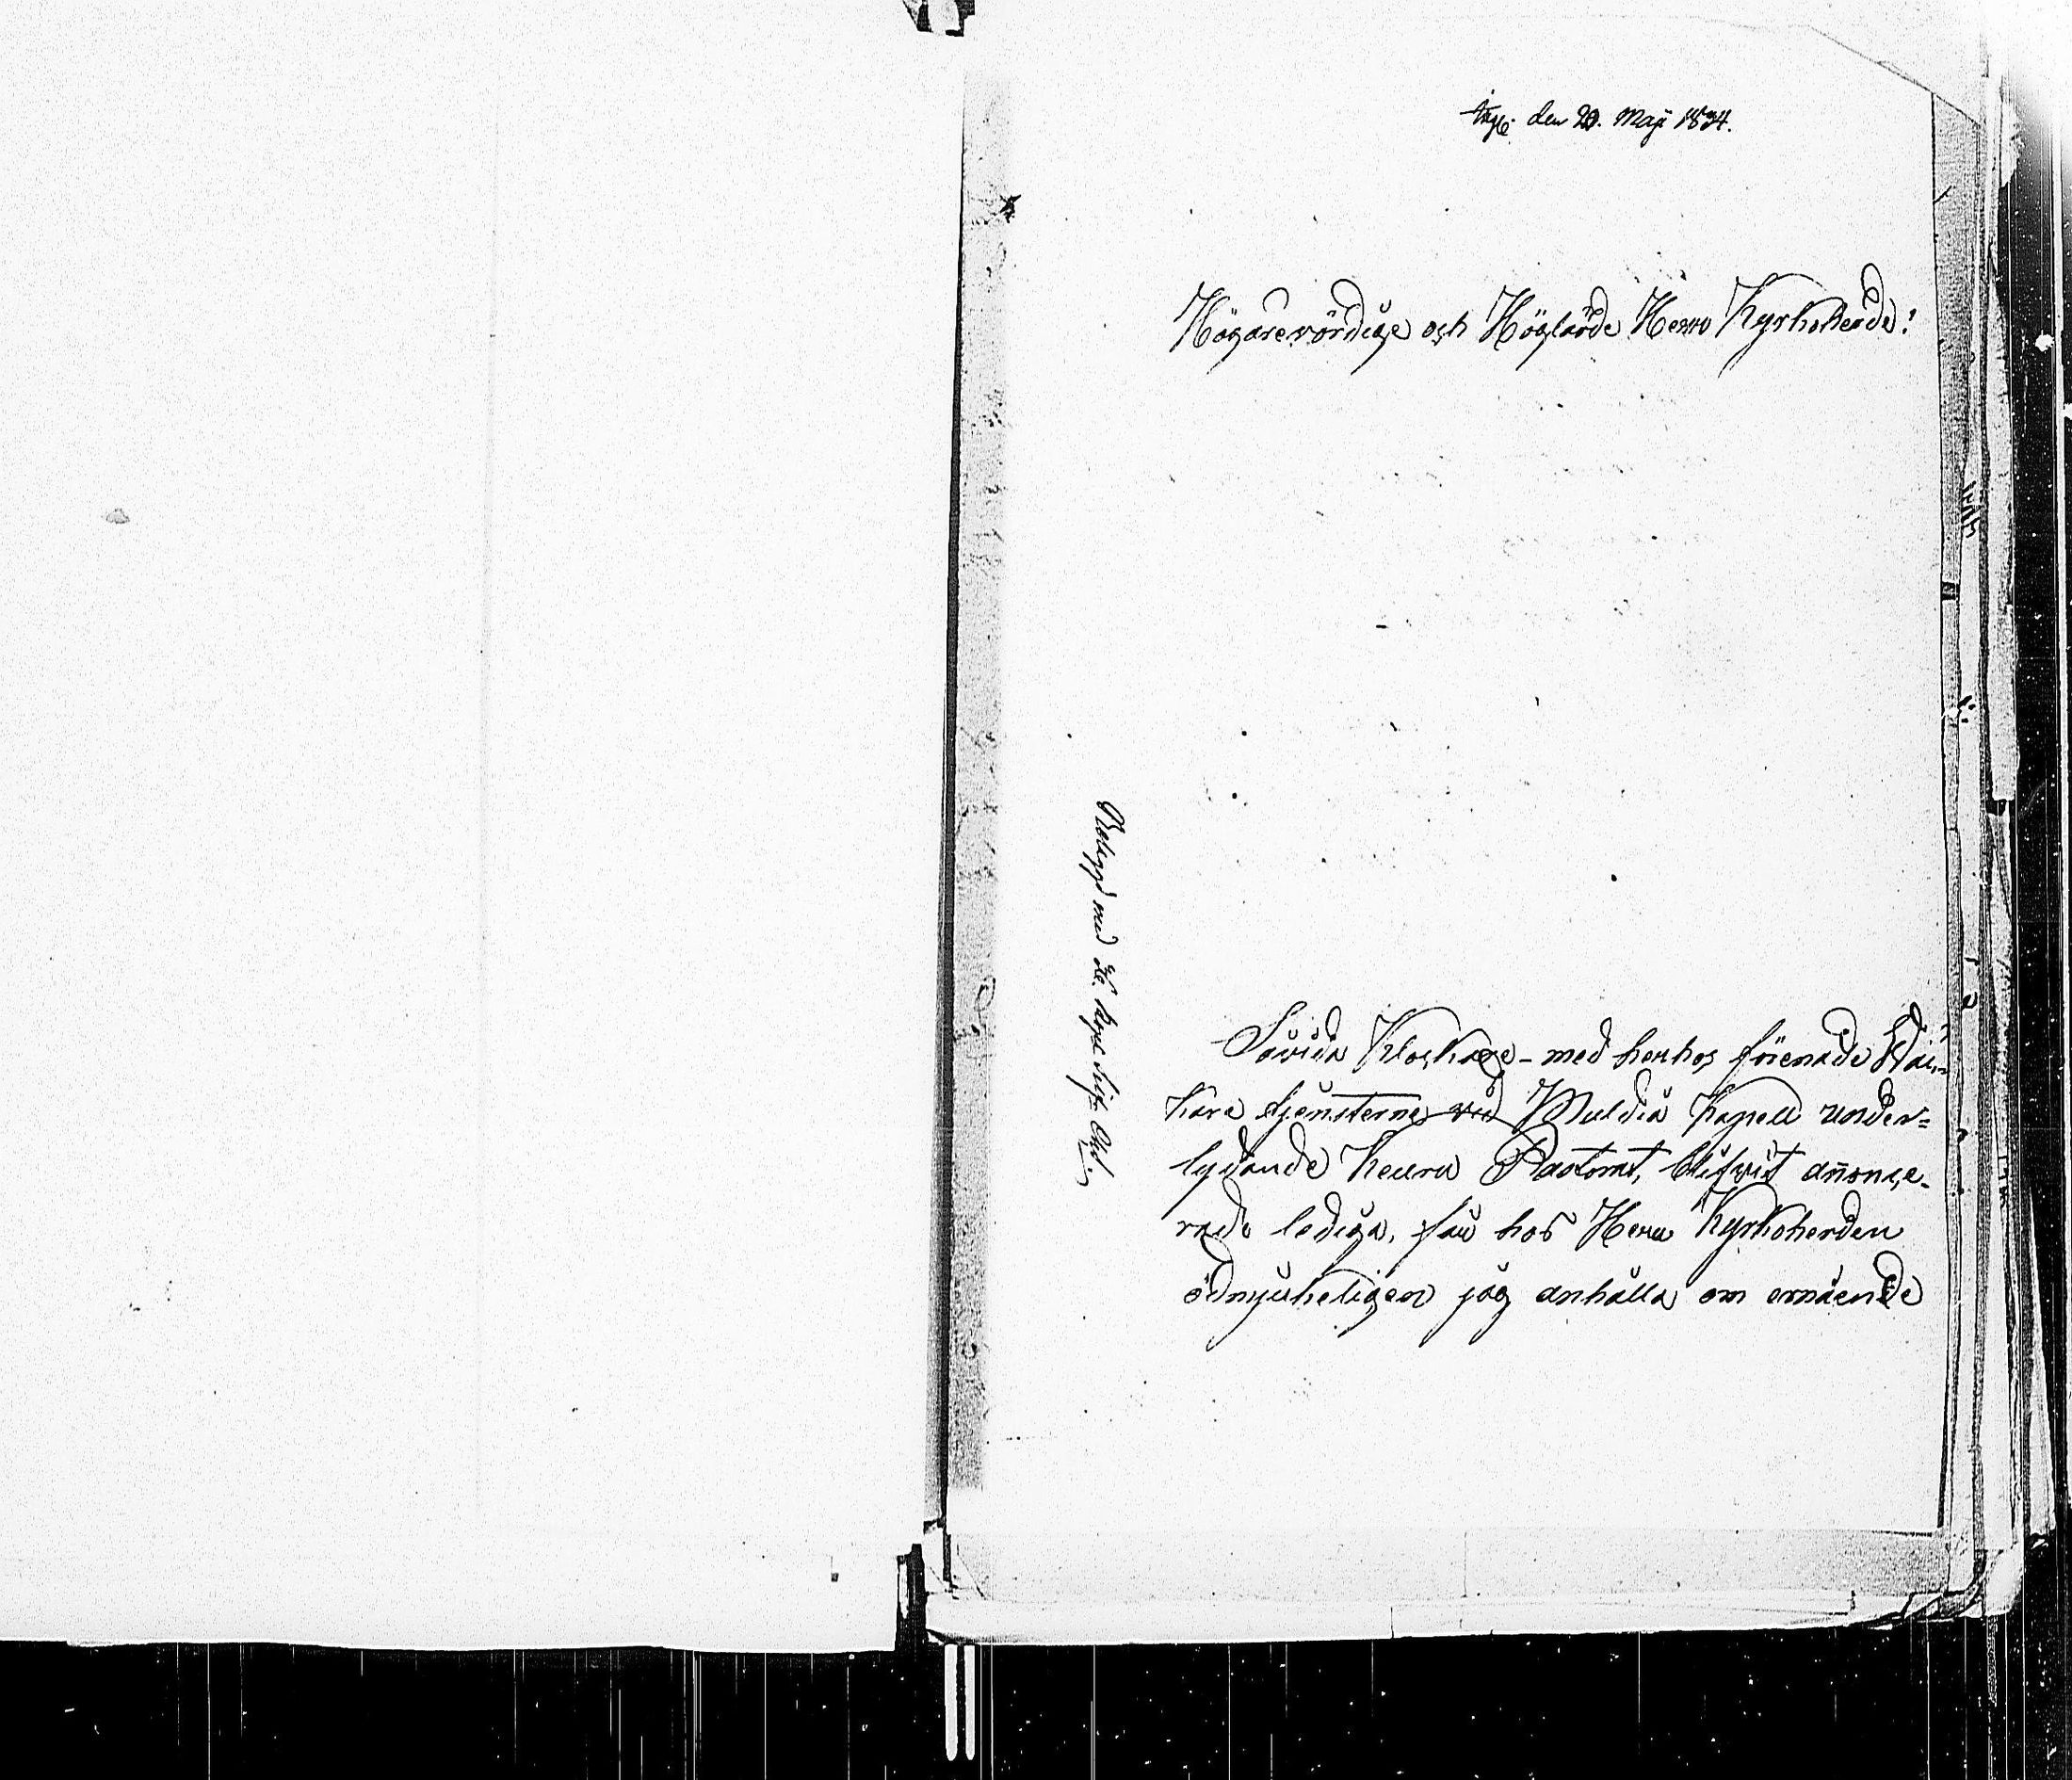 den 20. Maji 1834.
Högarevördige och Höglärde Herr Kyrkoherde!
Såvida Klockare- med herhos förenade
kare tjensterne vid Muldia Kapell under=
lydande Keuru Pastorat, blifvit annonce-
rade lediga, får hos Herr Kyrkoherden
ödmjukeligen jag anhålla om ernående
Belagd med